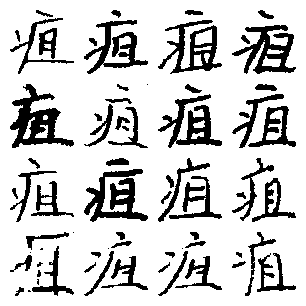 疽疽疽疽
疽疽疽疽
疽疽疽疽
疽疽疽疽